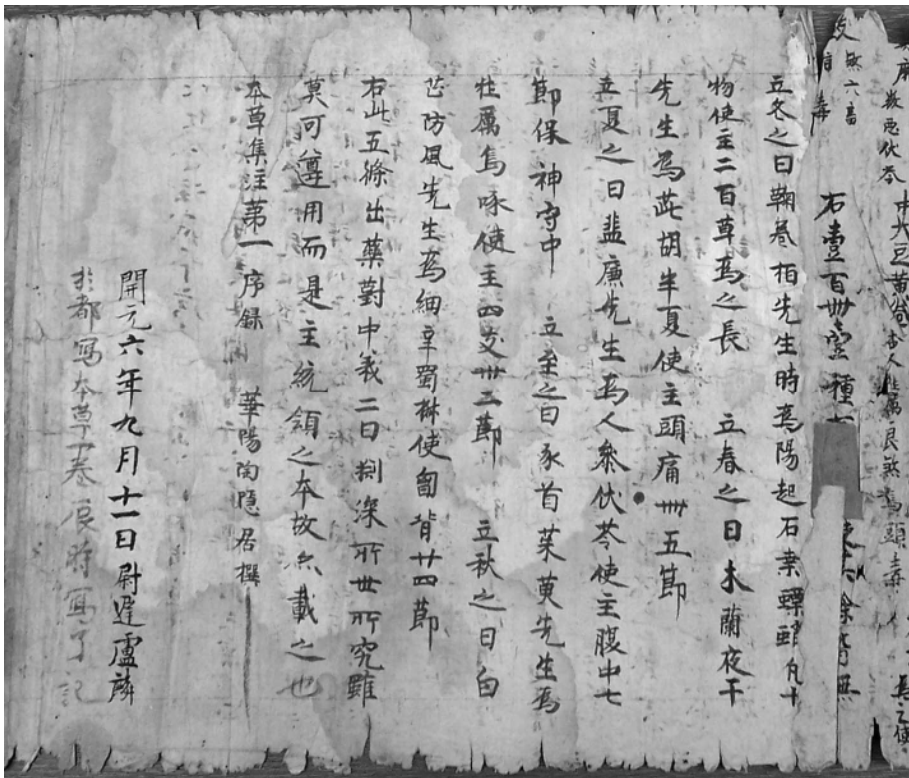 石壹百卌壹種
立冬之日鞠卷柏先生時為陽起石桒螵蛸凡十
物使主二百草為之長 立春之日木蘭夜干
先生為茈胡半夏使主頭痛卌五節
立夏之日蜚廉先生為人參伏苓使主腹中七
節保神守中 立至之日豕首茱萸先生為
牡厲烏喙使主四支卅二節 立秋之日白
芷防風先生為細辛蜀椒使匈背廿四節
右此五條出藥對中義二日捌深所世所究雖
莫可遵用而是主統領之本故亦載之也
本草集注第一序録 華陽陶隱居撰
開元六年九月十一日尉遲盧麟
於都寫本草一卷辰時寫了記